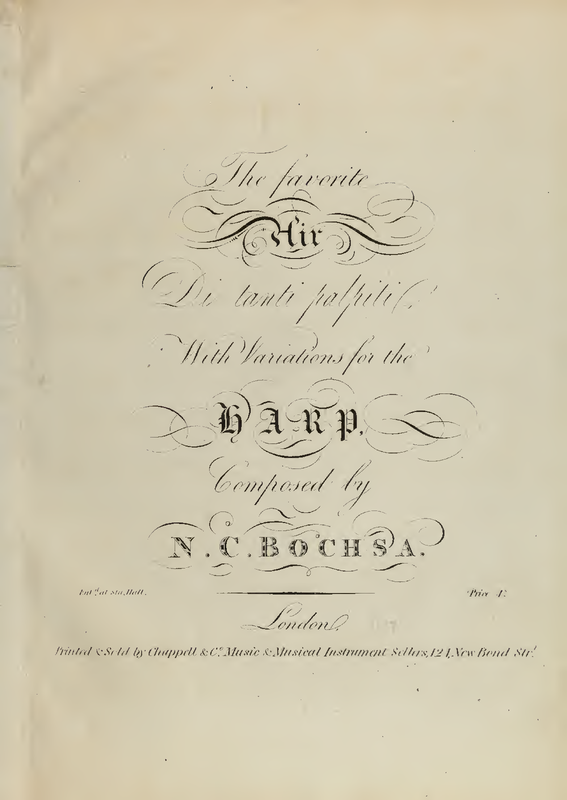 The favorite
Air
Di tanti palpiti
With Variations for the
HARP,
Composed by
N.C. BOCHSA.
Ent.d at Sta. Hall. Price 4s
London
Printed & Sold by Chappell & Co. Music & Musical Instrument Sellers, 124, New Bond Str.t